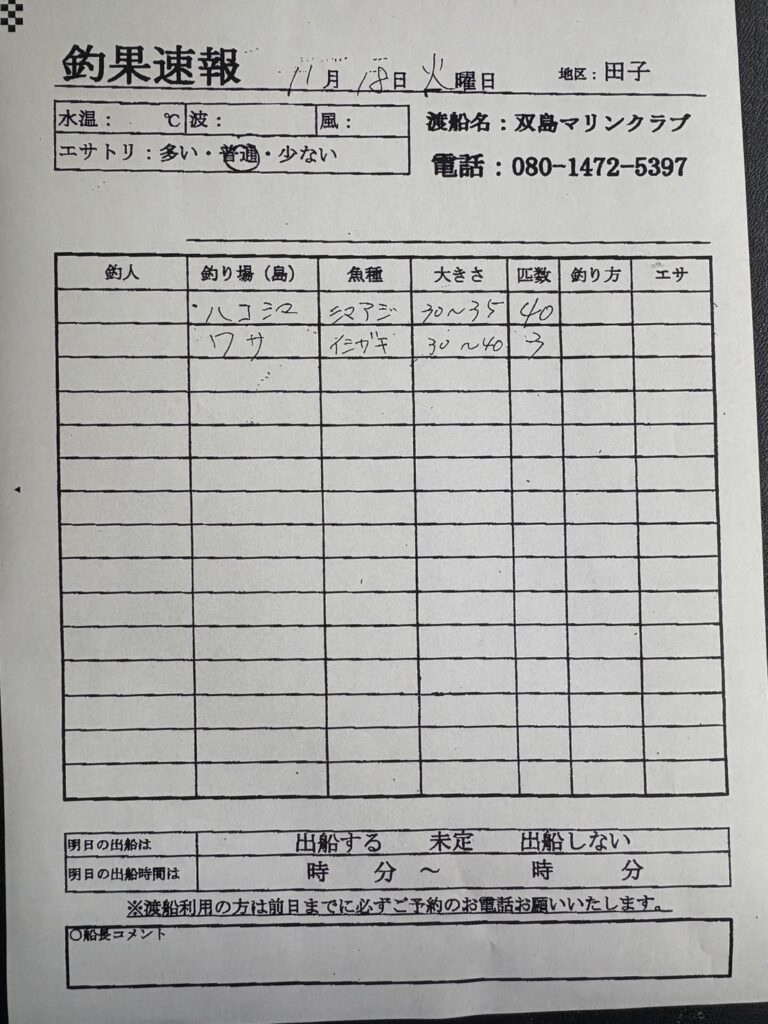 釣果速報 11月18日火曜日 地区：田子
水温： ℃ 波： 風：
渡船名：双島マリンクラブ
エサトリ：多い・普通・少ない
電話：080-1472-5397
釣人 釣り場（島） 魚種 大きさ 匹数 釣り方 エサ
ハコシマ シマアジ 30〜35 40
ワサ イシガキ 30〜40 3
明日の出船は 出船する 未定 出船しない
明日の出船時間は 時 分 〜 時 分
※渡船利用の方は前日までに必ずご予約のお電話お願いいたします。
○船長コメント